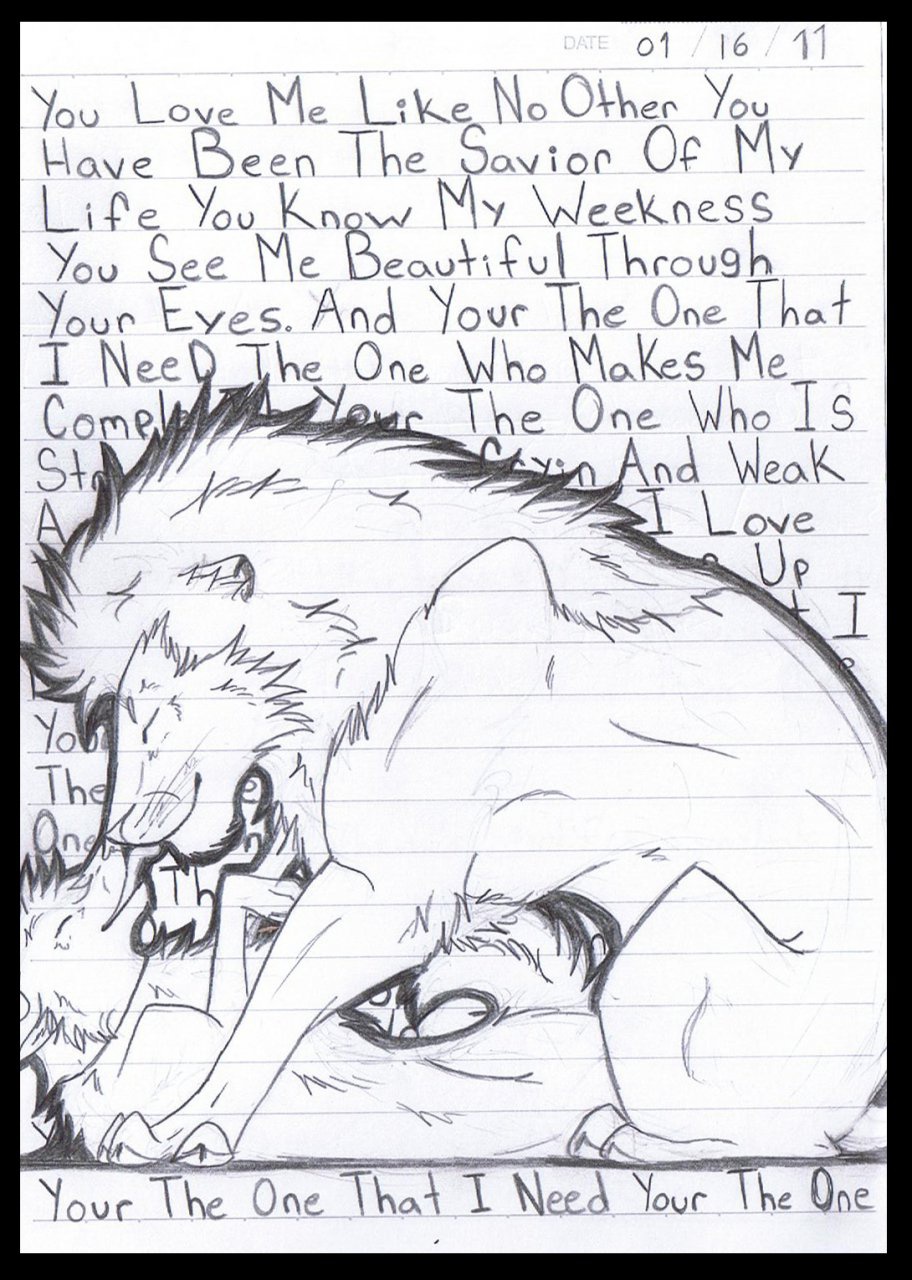 DATE 01 / 16 / 11
You Love Me Like No Other You
Have Been The Savior Of My
Life You Know My Weekness
You See Me Beautiful Through
Your Eyes. And Your The One That
I NeeD The One Who Makes Me
Your The One Who Is
And Weak
I Love
Up
I
You
The
One
Your The One That I Need Your The One